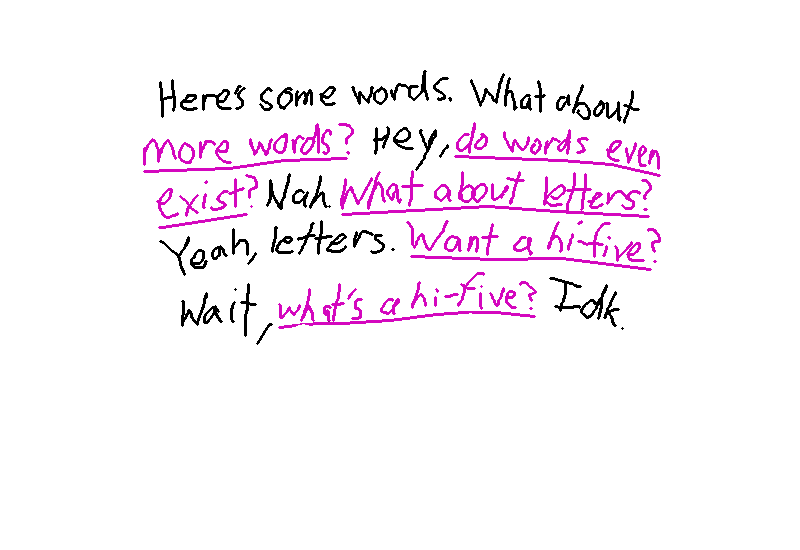 Here's some words. What about
more words? Hey, do words even
exist? Nah. What about letters?
Yeah, letters. Want a hi-five?
Wait, what's a hi-five? Idk.